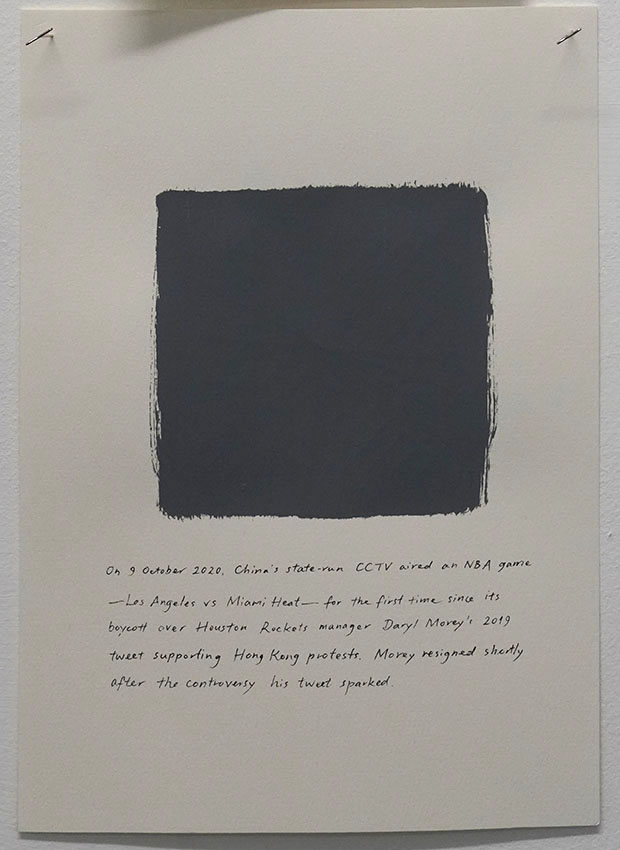 On 9 October 2020, China's state-run CCTV aired an NBA game
—Los Angeles vs Miami Heat— for the first time since its
boycott over Houston Rockets manager Daryl Morey's 2019
tweet supporting Hong Kong protests. Morey resigned shortly
after the controversy his tweet sparked.